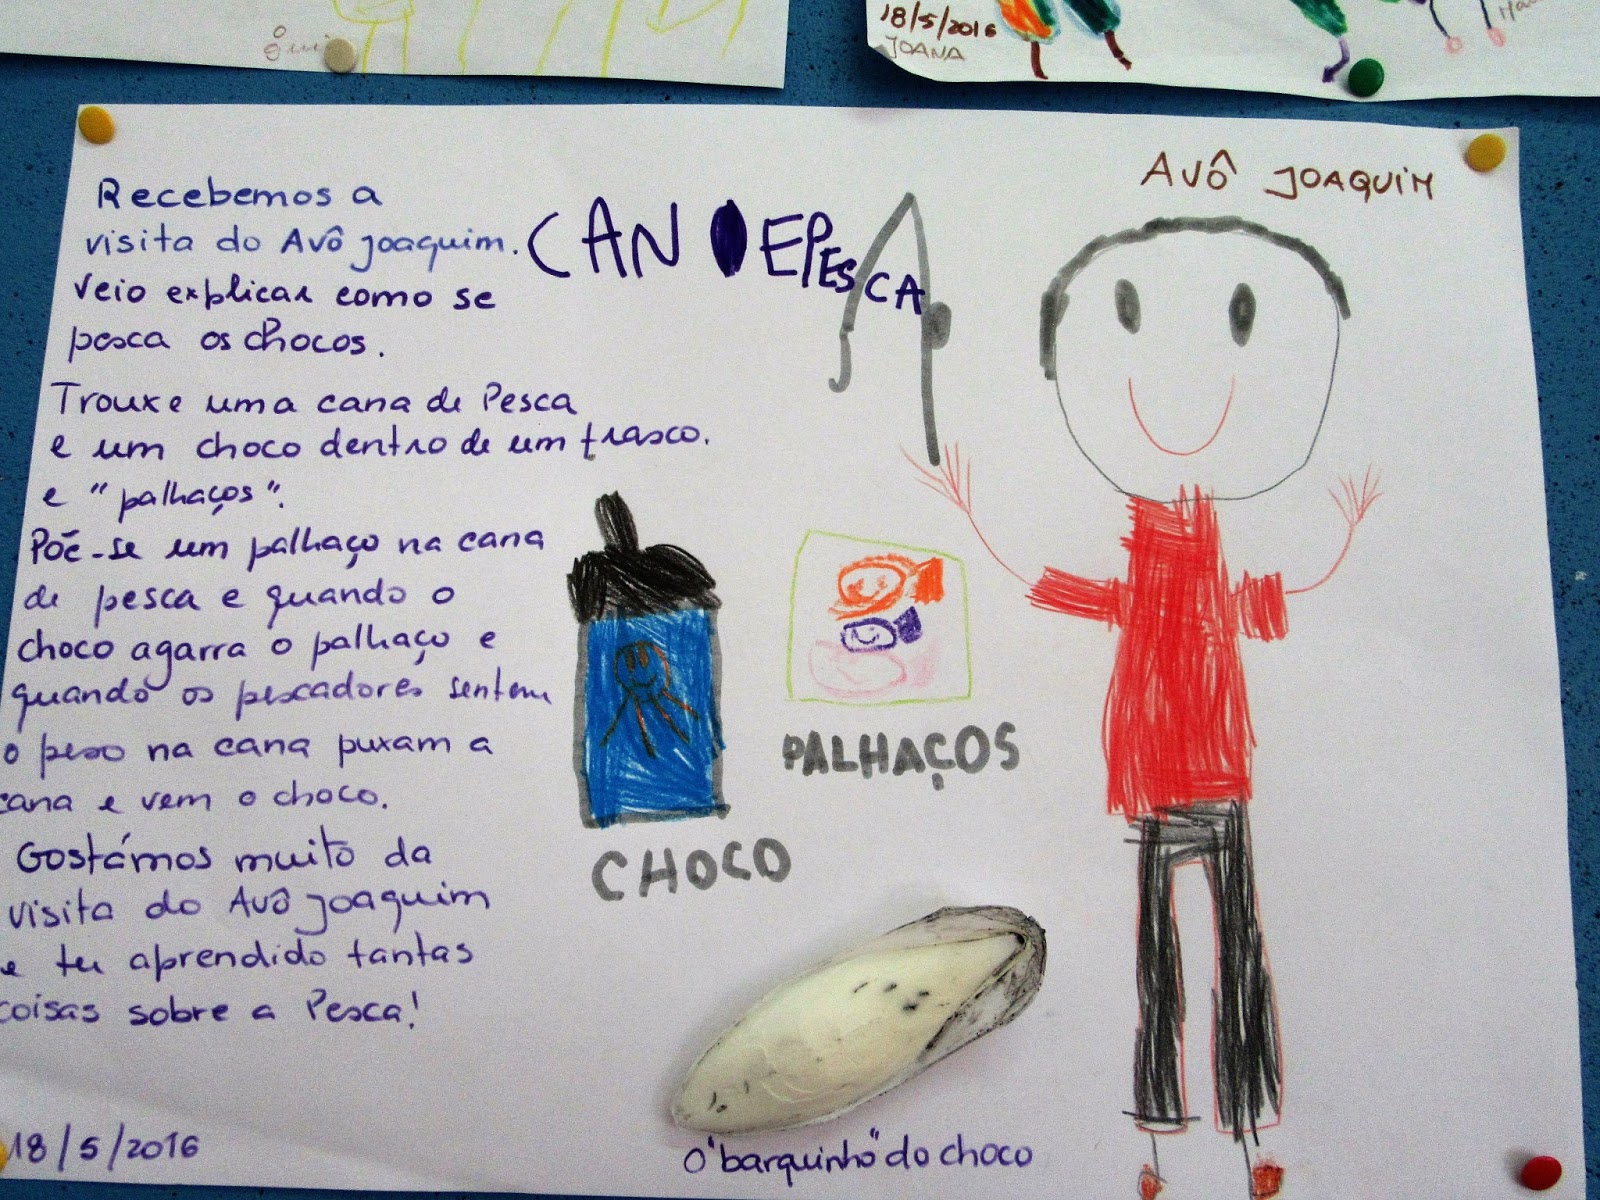 18/5/2016
JOANA
AVÔ JOAQUIM
Recebemos a
visita do Avô Joaquim.
Veio explicar como se
pesca os chocos.
Trouxe uma cana de Pesca
e um choco dentro de um frasco.
e "palhaços".
Põe-se um palhaço na cana
de pesca e quando o
choco agarra o palhaço e
quando os pescadores sentem
o peso na cana puxam a
cana e vem o choco.
Gostámos muito da
visita do Avô Joaquim
e ter aprendido tantas
coisas sobre a Pesca!
18/5/2016
CAN DEPESCA
PALHAÇOS
CHOCO
O "barquinho" do choco